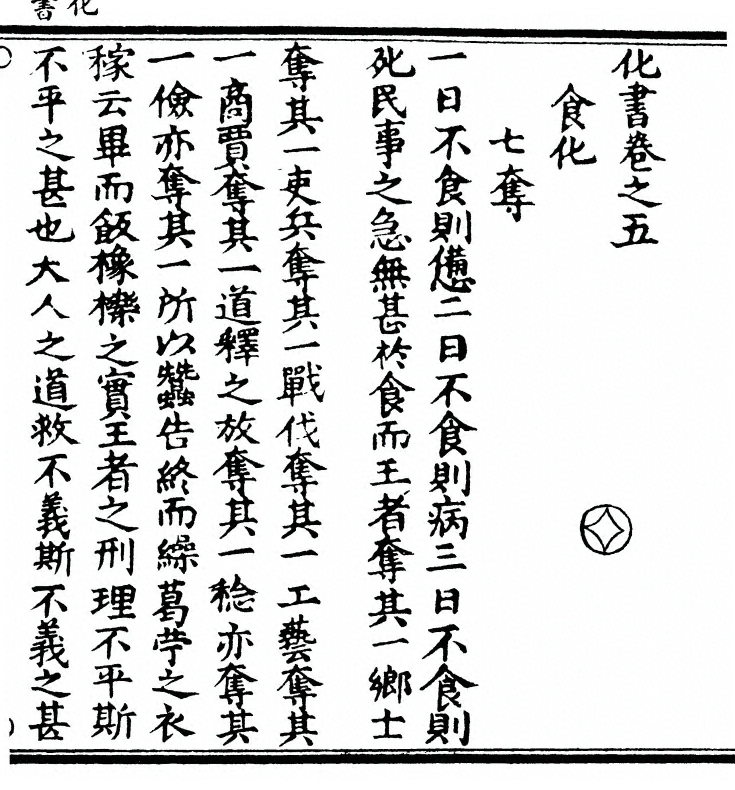 化書
化書卷之五
食化
七奪
一日不食則憊二日不食則病三日不食則
死民事之急無甚於食而王者奪其一鄉士
奪其一吏兵奪其一戰伐奪其一工藝奪其
一商賈奪其一道釋之放奪其一稔亦奪其
一儉亦奪其一所以蠶告終而繰葛苧之衣
稼云畢而飯橡櫟之實王者之刑理不平斯
不平之甚也大人之道救不義斯不義之甚